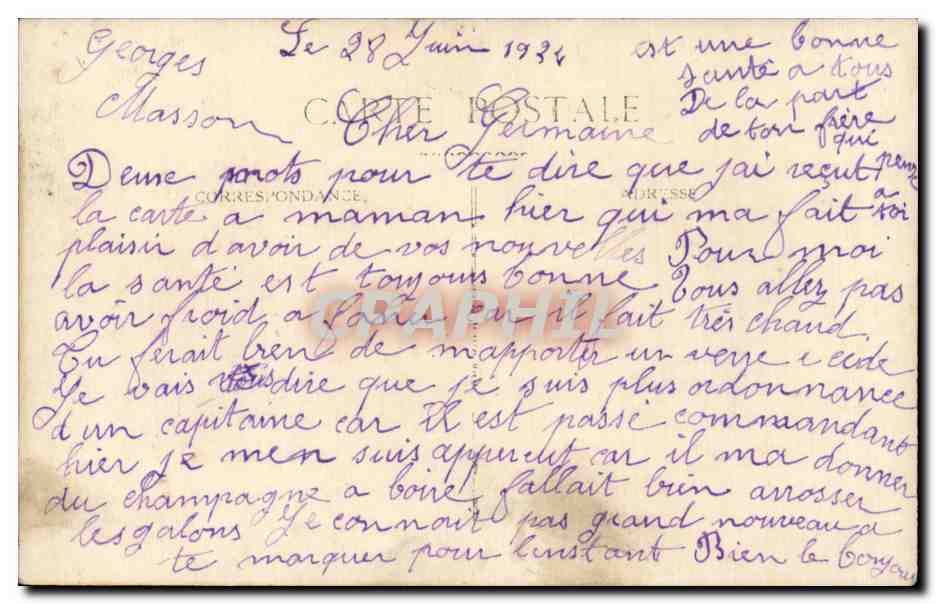 Georges
Masson
Le 28 Juin 1924
CARTE POSTALE
Cher Germaine
CORRESPONDANCE
ADRESSE
Deuse mots pour te dire que jai reçut
la carte a maman hier qui ma fait
plaisir davoir de vos nouvelles Pour moi
la santé est toujours bonne Vous allez pas
avoir froid a car il fait très chaud
Tu ferait bien de mapporter un verre e cide
Je vais vous dire que je suis plus ordonnance
dun capitaine car il est passé commandant
hier je men suis apperçut car il ma donner
du champagne a boire fallait bien arrosser
les galons Je connait pas grand nouveau a
te marquer pour linstant Bien le bonjour
est une bonne
santé a tous
De la part
de ton frère
qui
pense
a
toi
CPAPHIL